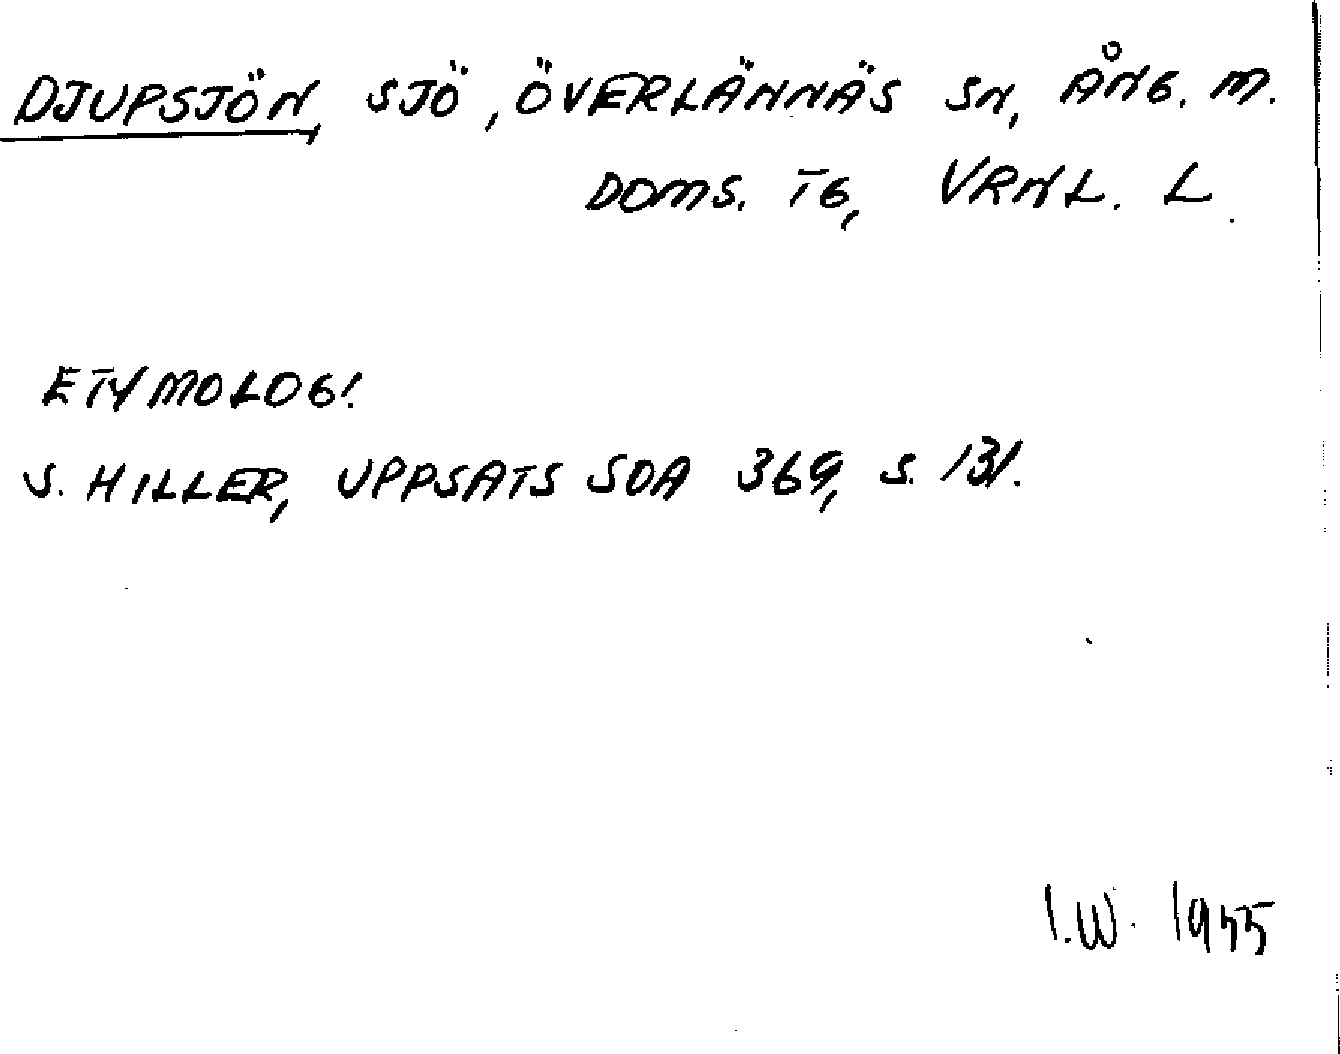 DJUPSJÖN, SJÖ, ÖVERLÄNNÄS SN, ÅNG. M.
DOMS. TG, VRNL. L.
ETYMOLOGI.
S. HILLER, UPPSATS SOA 369, S. 131.
I.W. 1955